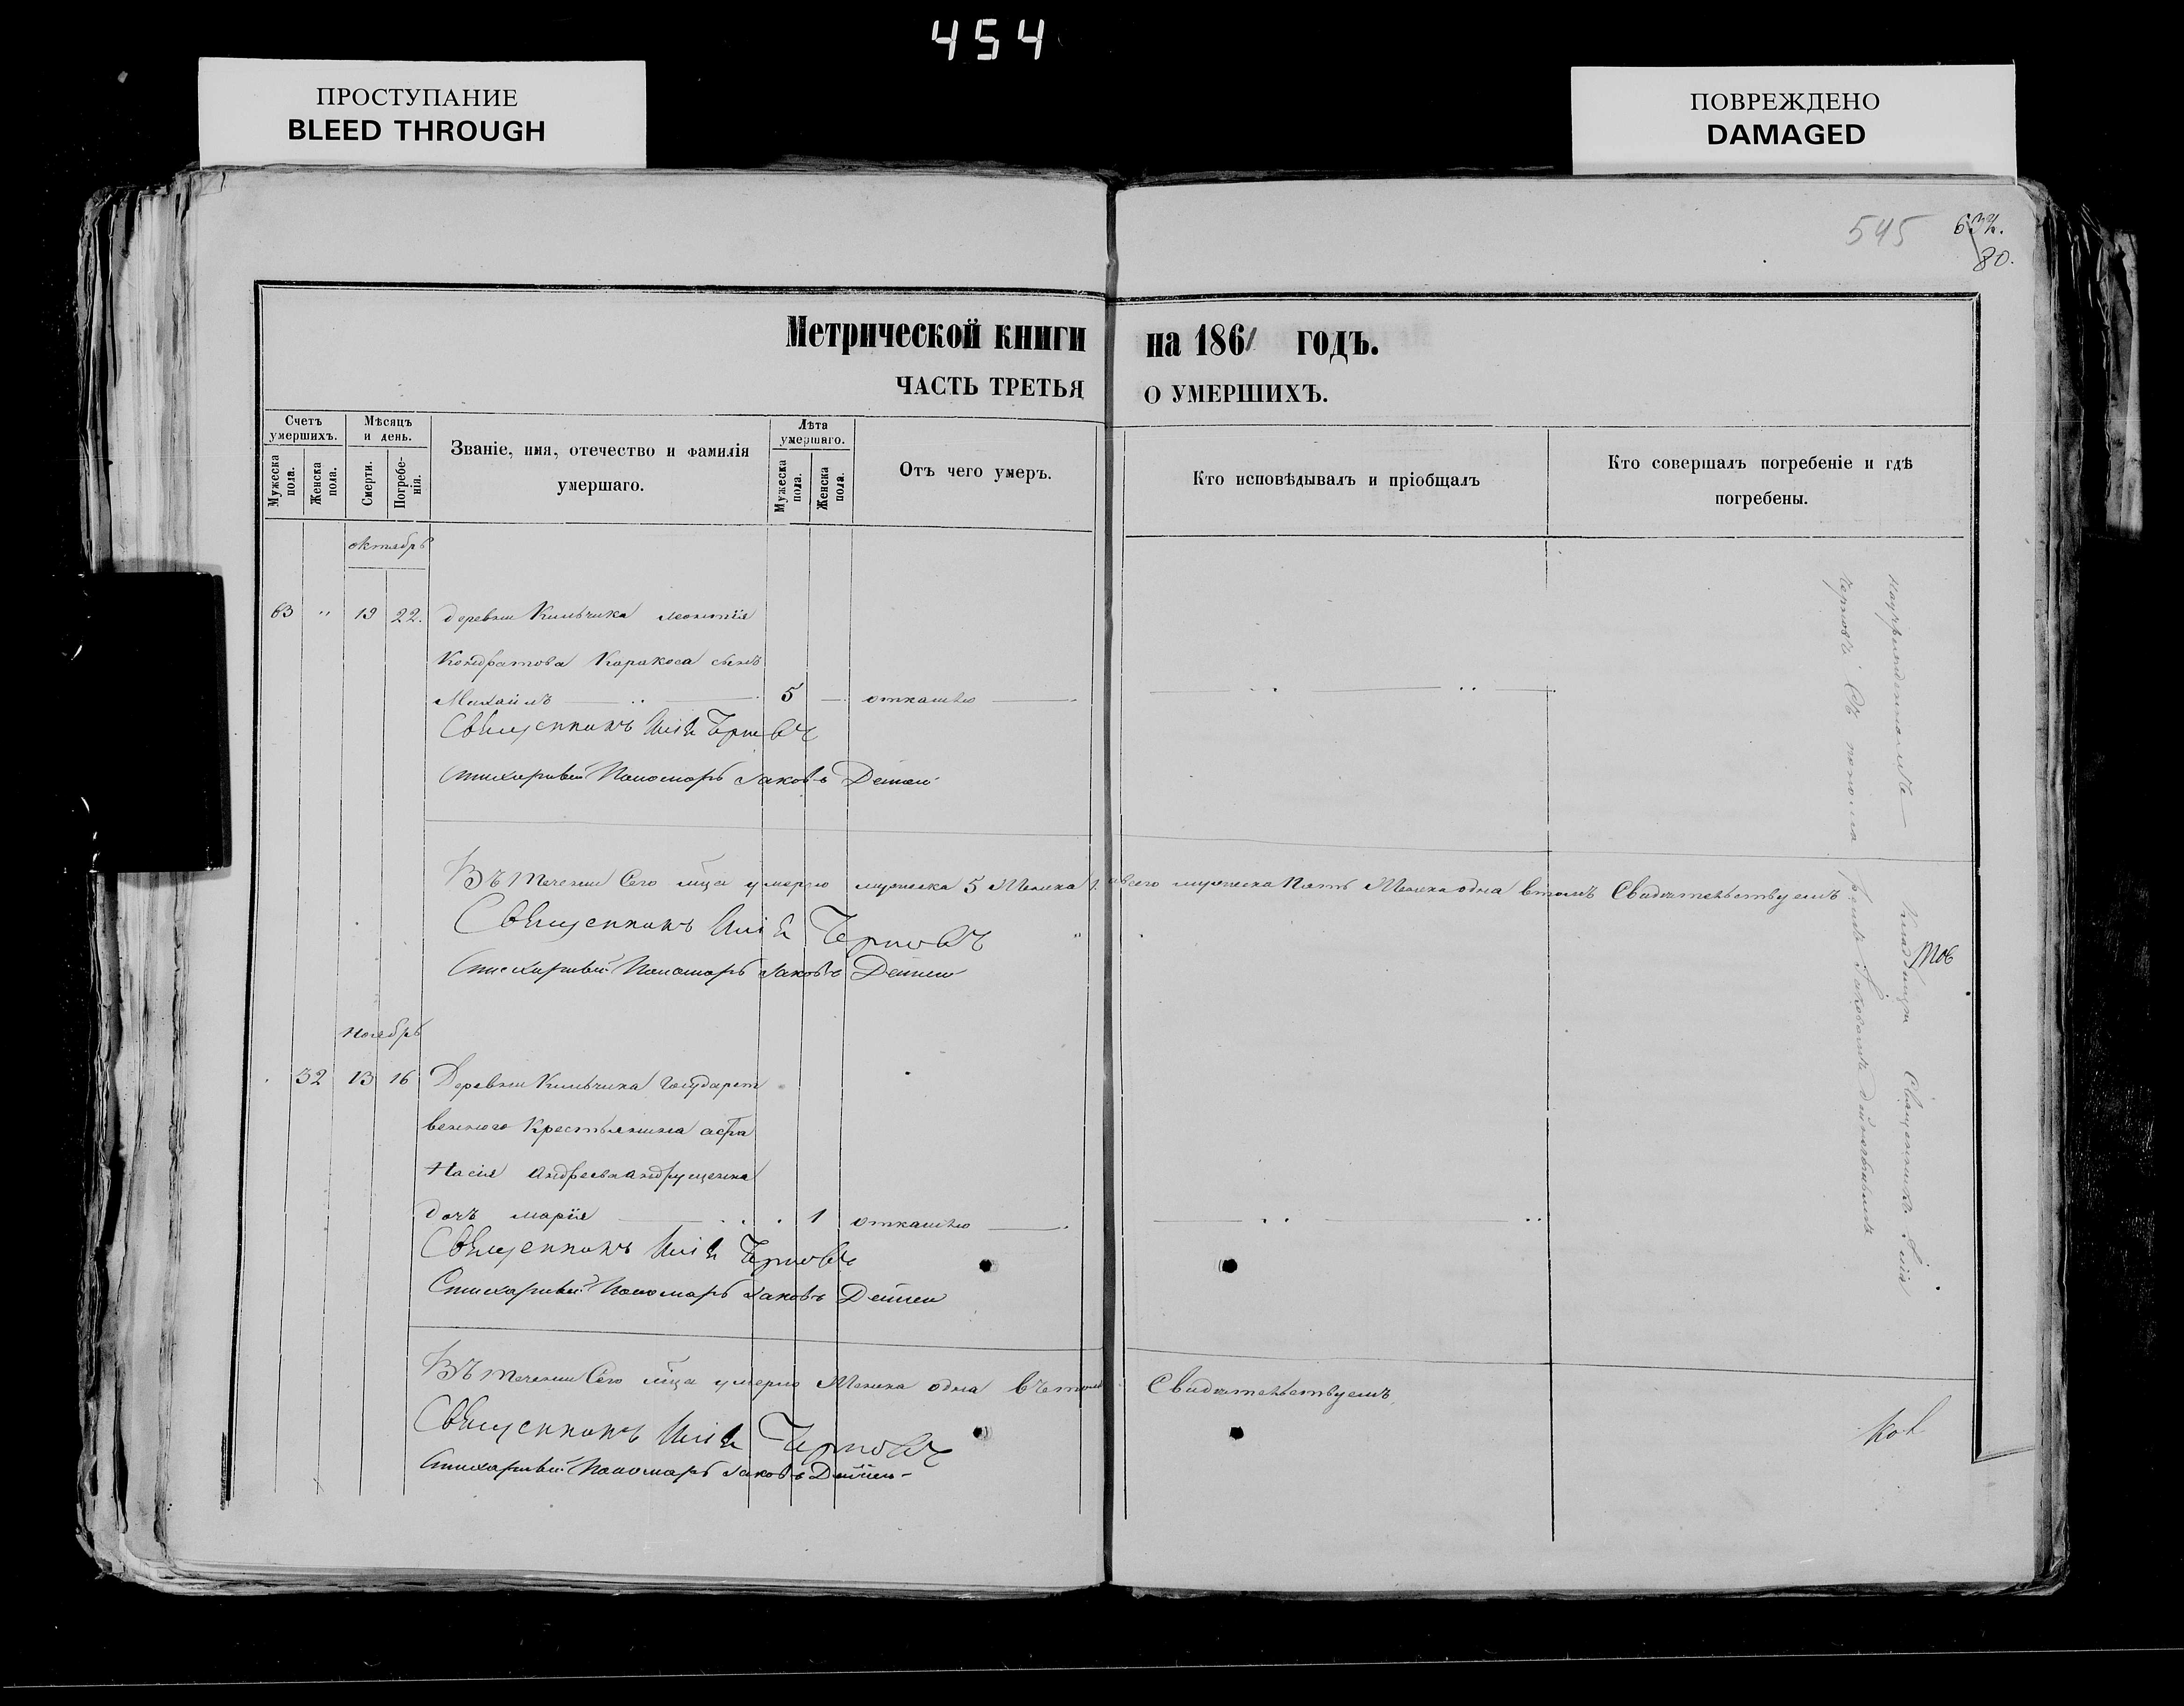 454
ПРОСТУПАНИЕ
BLEED THROUGH
ПОВРЕЖДЕНО
DAMAGED
545
80.
Метрической книги на 1861 годъ.
ЧАСТЬ ТРЕТЬЯ О УМЕРШИХЪ.
Счетъ умершихъ.
Мужеска пола.
Женска пола.
Мѣсяцъ и день.
Смерти.
Погребенія.
Званіе, имя, отечество и фамилія
умершаго.
Лѣта умершаго.
Мужеска пола.
Женска пола.
Отъ чего умеръ.
Кто исповѣдывалъ и пріобщалъ
Кто совершалъ погребеніе и гдѣ
погребены.
октябрь
63 " 19 22. деревни Кильчика леонтія
Кондратова Каракоса сынъ
Михаилъ 5 — откашлю
Священникъ Илія Черновъ
Стихарный Пономарь Іаковъ
Въ течении Сего мца умерло мужеска 5 Женска 1. а всего мужеска Пять Женска одна втомъ Свидѣтельствуемъ
Священникъ Илія Черновъ
Стихарный Пономарь Іаковъ
ноябрь
32 13 16 Деревни Кильчика Государст
веннаго Крестьянина афа
насія Андреева Андрущенка
дочъ марія 1 откашлю
Священникъ Илія Черновъ
Стихарный Пономарь Іаковъ
Въ течении Сего мца умерло Женска одна въ томъ Свидѣтельствуемъ
Священникъ Илія Черновъ
Стихарный Пономарь Іаковъ
Священникъ Илія